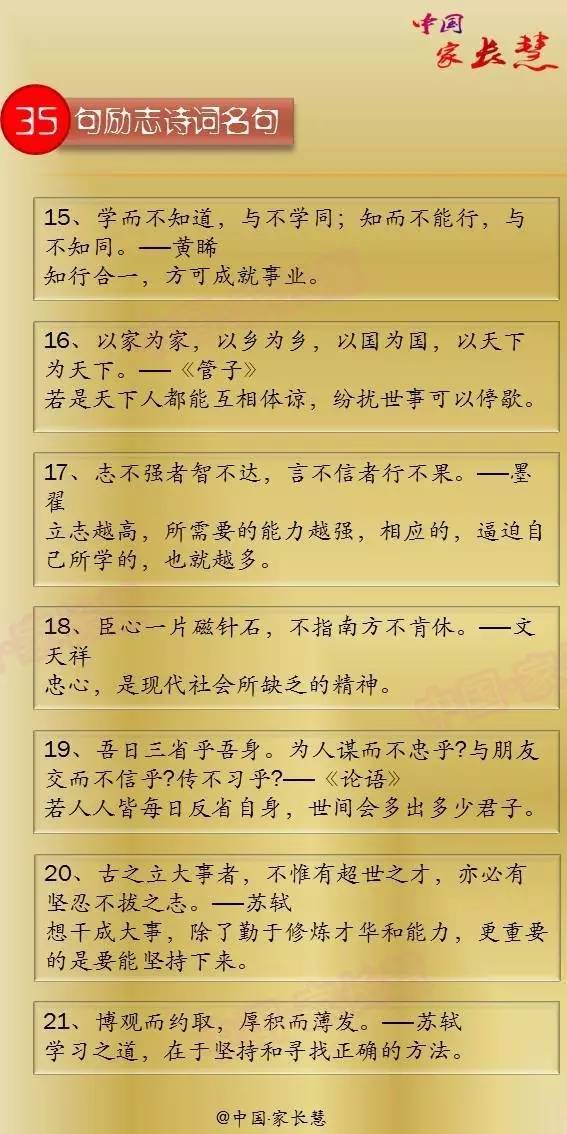 中国
家长慧
35 句励志诗词名句
15、学而不知道，与不学同；知而不能行，与
不知同。——黄睎
知行合一，方可成就事业。
16、以家为家，以乡为乡，以国为国，以天下
为天下。——《管子》
若是天下人都能互相体谅，纷扰世事可以停歇。
17、志不强者智不达，言不信者行不果。——墨
翟
立志越高，所需要的能力越强，相应的，逼迫自
己所学的，也就越多。
18、臣心一片磁针石，不指南方不肯休。——文
天祥
忠心，是现代社会所缺乏的精神。
19、吾日三省乎吾身。为人谋而不忠乎?与朋友
交而不信乎?传不习乎?——《论语》
若人人皆每日反省自身，世间会多出多少君子。
20、古之立大事者，不惟有超世之才，亦必有
坚忍不拔之志。——苏轼
想干成大事，除了勤于修炼才华和能力，更重要
的是要能坚持下来。
21、博观而约取，厚积而薄发。——苏轼
学习之道，在于坚持和寻找正确的方法。
@中国·家长慧